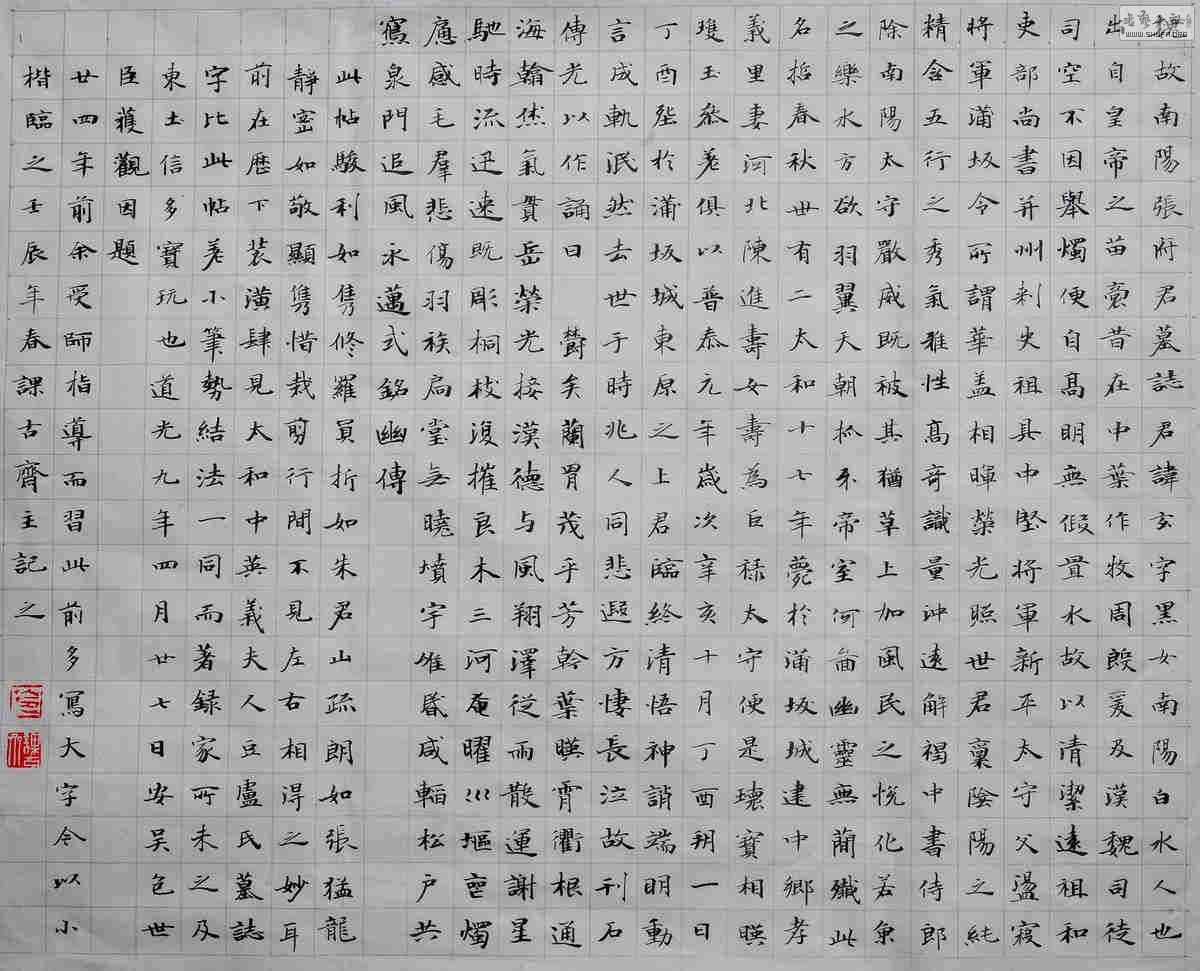 魏故南陽張府君墓誌君諱玄字黑女南陽白水人也
出自皇帝之苗裔昔在中葉作牧周殷爰及漢魏司徒
司空不因舉燭便自高明無假置水故以清潔遠祖和
吏部尚書并州刺史祖具中堅將軍新平太守父盪寇
將軍蒲坂令所謂華蓋相暉榮光照世君稟陰陽之純
精含五行之秀氣雅性高奇識量沖遠解褐中書侍郎
除南陽太守嚴威既被其猶草上加風民之悅化若魚
之樂水方欲羽翼天朝抓牙帝室何啚幽靈無簡殲此
名哲春秋卅有二太和十七年薨於蒲坂城建中鄉孝
義里妻河北陳進壽女壽為巨祿太守便是瓌寶相暎
瓊玉叅差俱以普泰元年歲次辛亥十月丁酉朔一日
丁酉塟於蒲坂城東原之上君臨終清悟神誚端明動
言成軌泯然去世于時兆人同悲遐方悽長泣故刊石
傳光以作誦曰 鬱矣蘭胄茂乎芳幹葉暎霄衢根通
海翰然氣貫岳榮光接漢德与風翔澤從雨散運謝星
馳時流迅速既彫桐枝復摧良木三河奄曜巛堀燭
感毛羣悲傷羽族扃堂无曉墳宇唯昏咸輼松戶共
寫泉門追風永邁式銘幽傳
此帖駿利如雋修羅員折如朱君山疏朗如張猛龍
靜密如敬顯雋惜裁剪行間不見左右相得之妙耳
前在歷下裝潢肆見太和中英義夫人豆盧氏墓誌
字比此帖差小筆勢結法一同而著録家所未之及
東土信多寶玩也道光九年四月廿七日安吳包世
臣獲觀因題
廿四年前余受師指導而習此前多寫大字今以小
楷臨之壬辰年春課古齊主記之
WWW.SHUFA.ORG